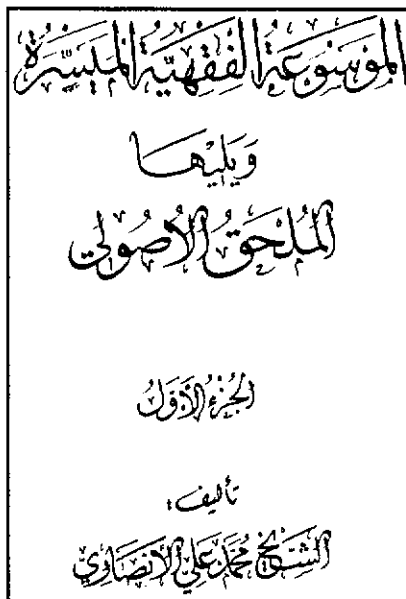 الموسوعة الفقهية الميسرة
ويليها
الملحق الأصولي
الجزء الأول
تأليف:
الشيخ محمد علي الأنصاري